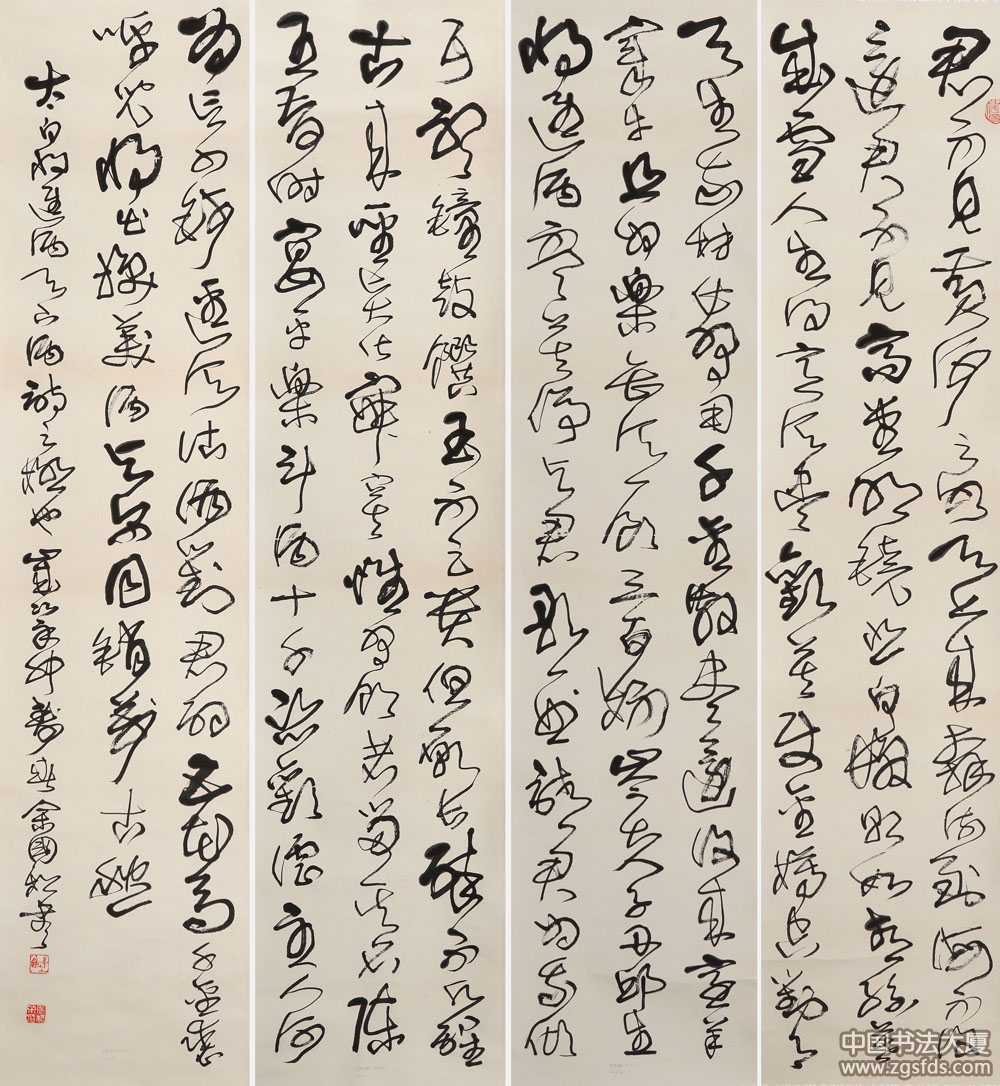 君不見黃河之水天上來奔流到海不復
迴君不見高堂明鏡悲白髮朝如青絲暮
成雪人生得意須盡歡莫使金樽空對月
天生我材必有用千金散盡還復來烹羊
宰牛且為樂會須一飲三百杯岑夫子丹邱生
將進酒杯莫停與君歌一曲請君為我傾
耳聽鐘鼓饌玉不足貴但願長醉不醒
古來聖賢皆寂寞惟有飲者留其名陳
王昔時宴平樂斗酒十千恣歡謔主人何
為言少錢徑須沽酒對君酌五花馬千金裘
呼兒將出換美酒與爾同銷萬古愁
太白將進酒天下酒詩之極也歲次辛卯春余國松書
中国书法大厦
www.zgsfds.com